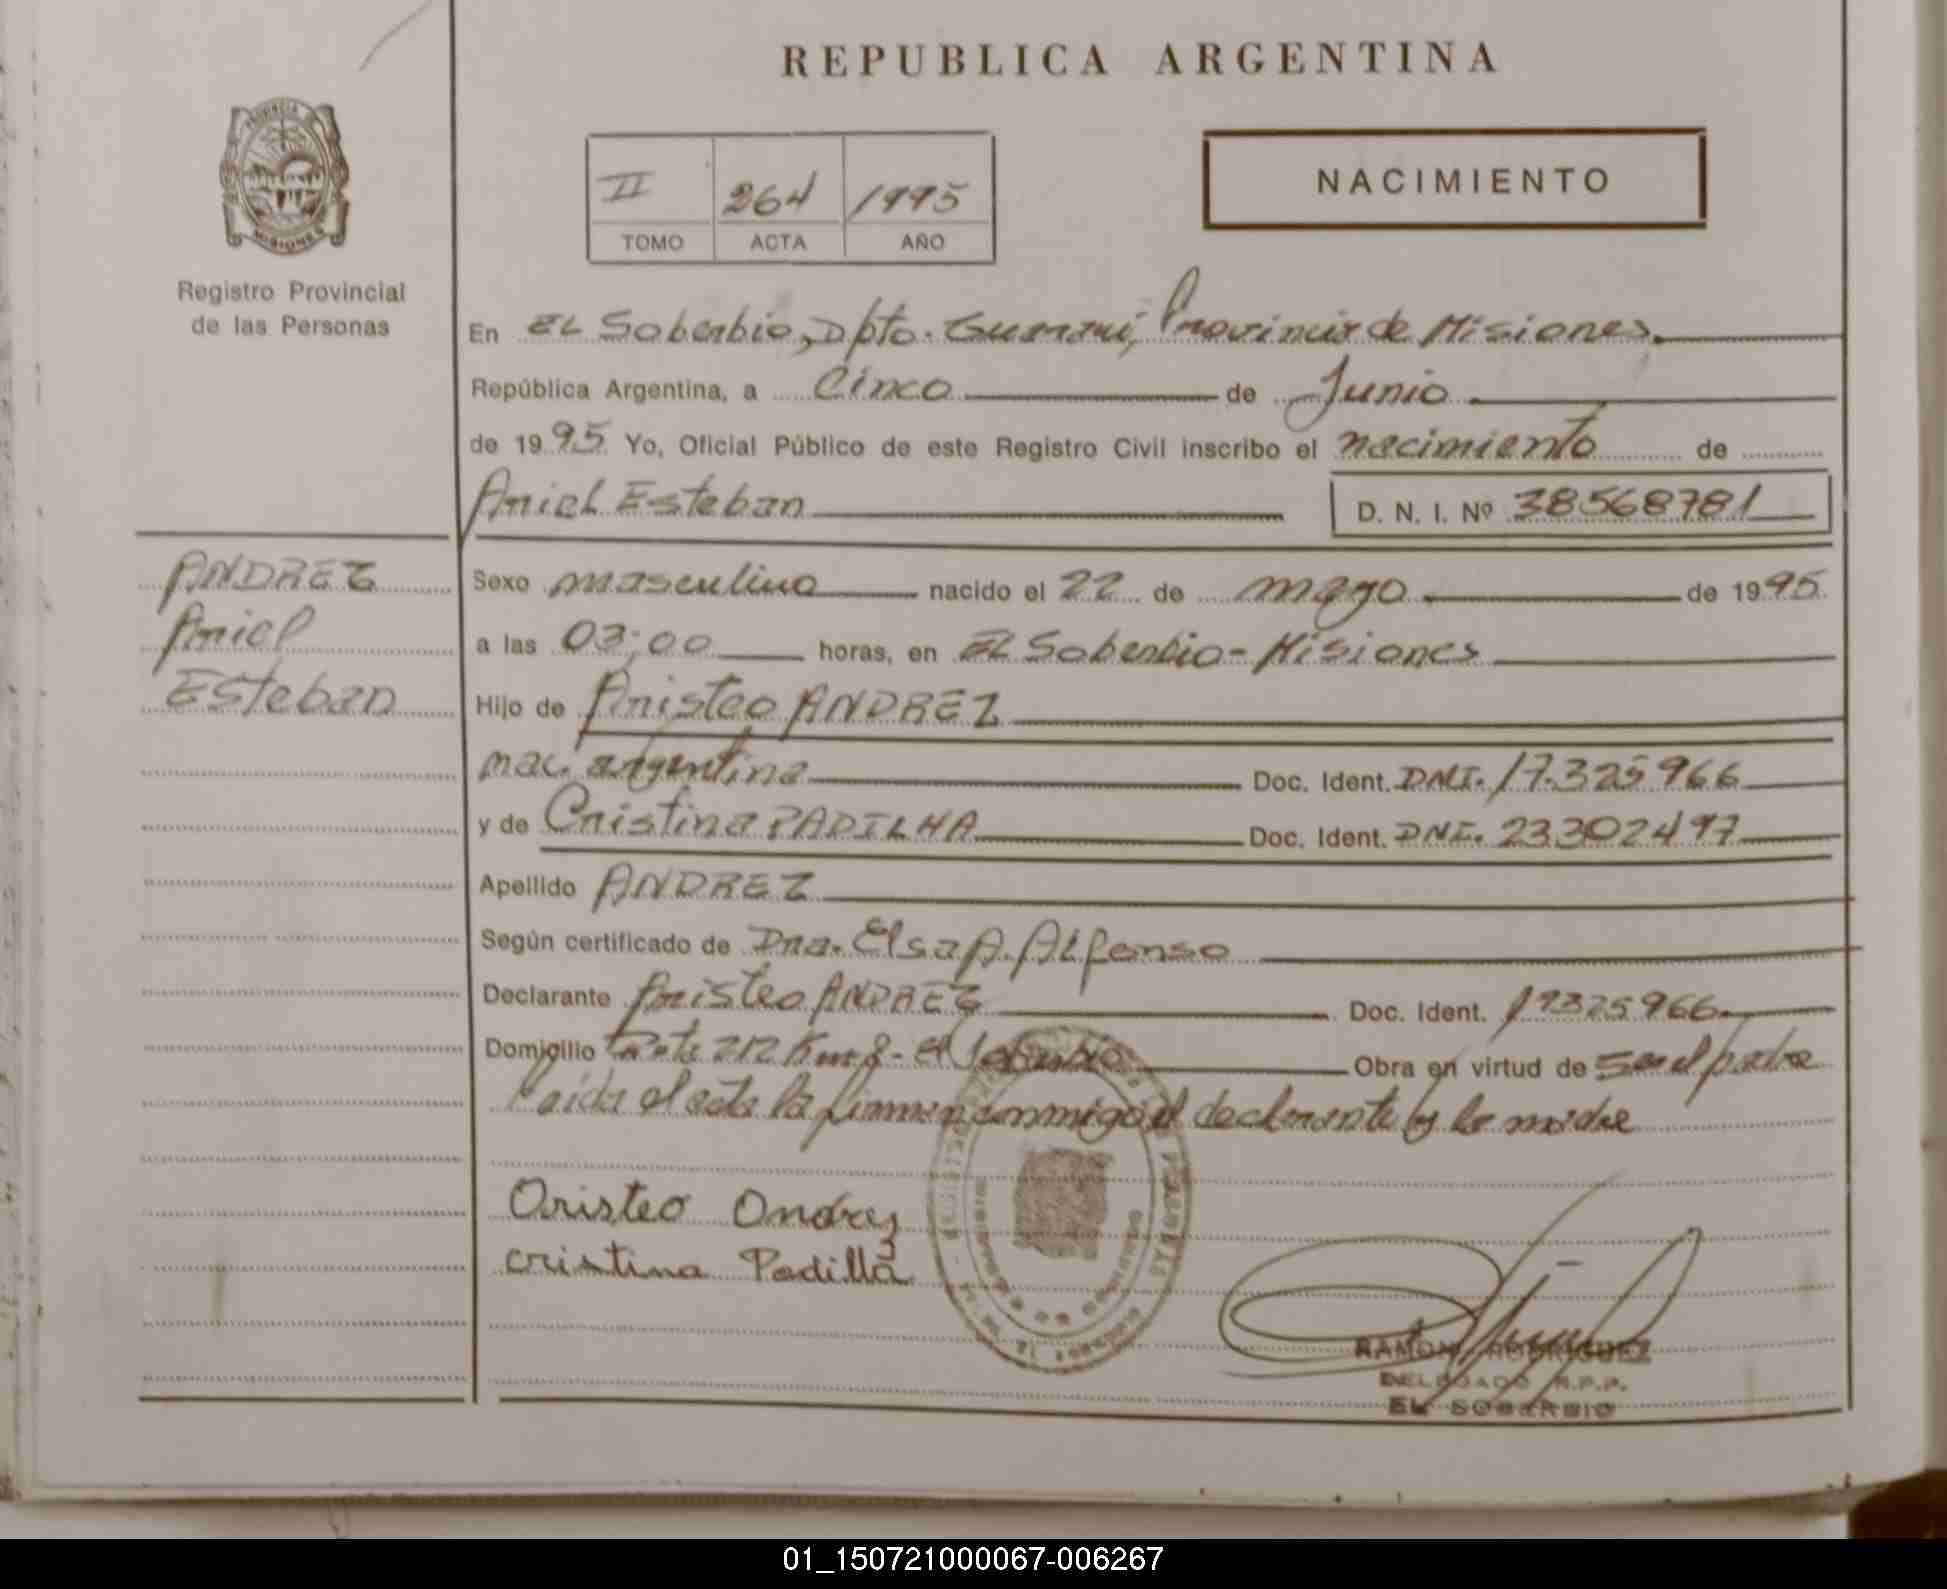 REPUBLICA ARGENTINA
PROVINCIA DE
MISIONES
Registro Provincial
de las Personas
II 264 1995
TOMO ACTA AÑO
NACIMIENTO
En EL Soberbio, Dpto. Guaraní, Provincia de Misiones.
República Argentina, a Cinco de Junio
de 1995 Yo, Oficial Público de este Registro Civil inscribo el nacimiento de
Ariel Esteban D. N. I. Nº 38568781
ANDREZ
Ariel
Esteban
Sexo masculino nacido el 22 de mayo de 1995
a las 03;00 horas, en EL Soberbio - Misiones
Hijo de Aristeo ANDREZ
nac. argentina Doc. Ident. DNI. 17.325966
y de Cristina PADILHA Doc. Ident. DNI. 23302497
Apellido ANDREZ
Según certificado de Dra. Elsa A. ALfonso
Declarante Aristeo ANDREZ Doc. Ident. 17325966
Domicilio Ruta 212 Km 8 - El Soberbio Obra en virtud de ser el padre
Leída el acta la firman conmigo el declarante y la madre
Aristeo Andrez
cristina Padilla
RAMON RODRIGUEZ
DELEGADO R.P.P.
EL SOBERBIO
01_150721000067-006267